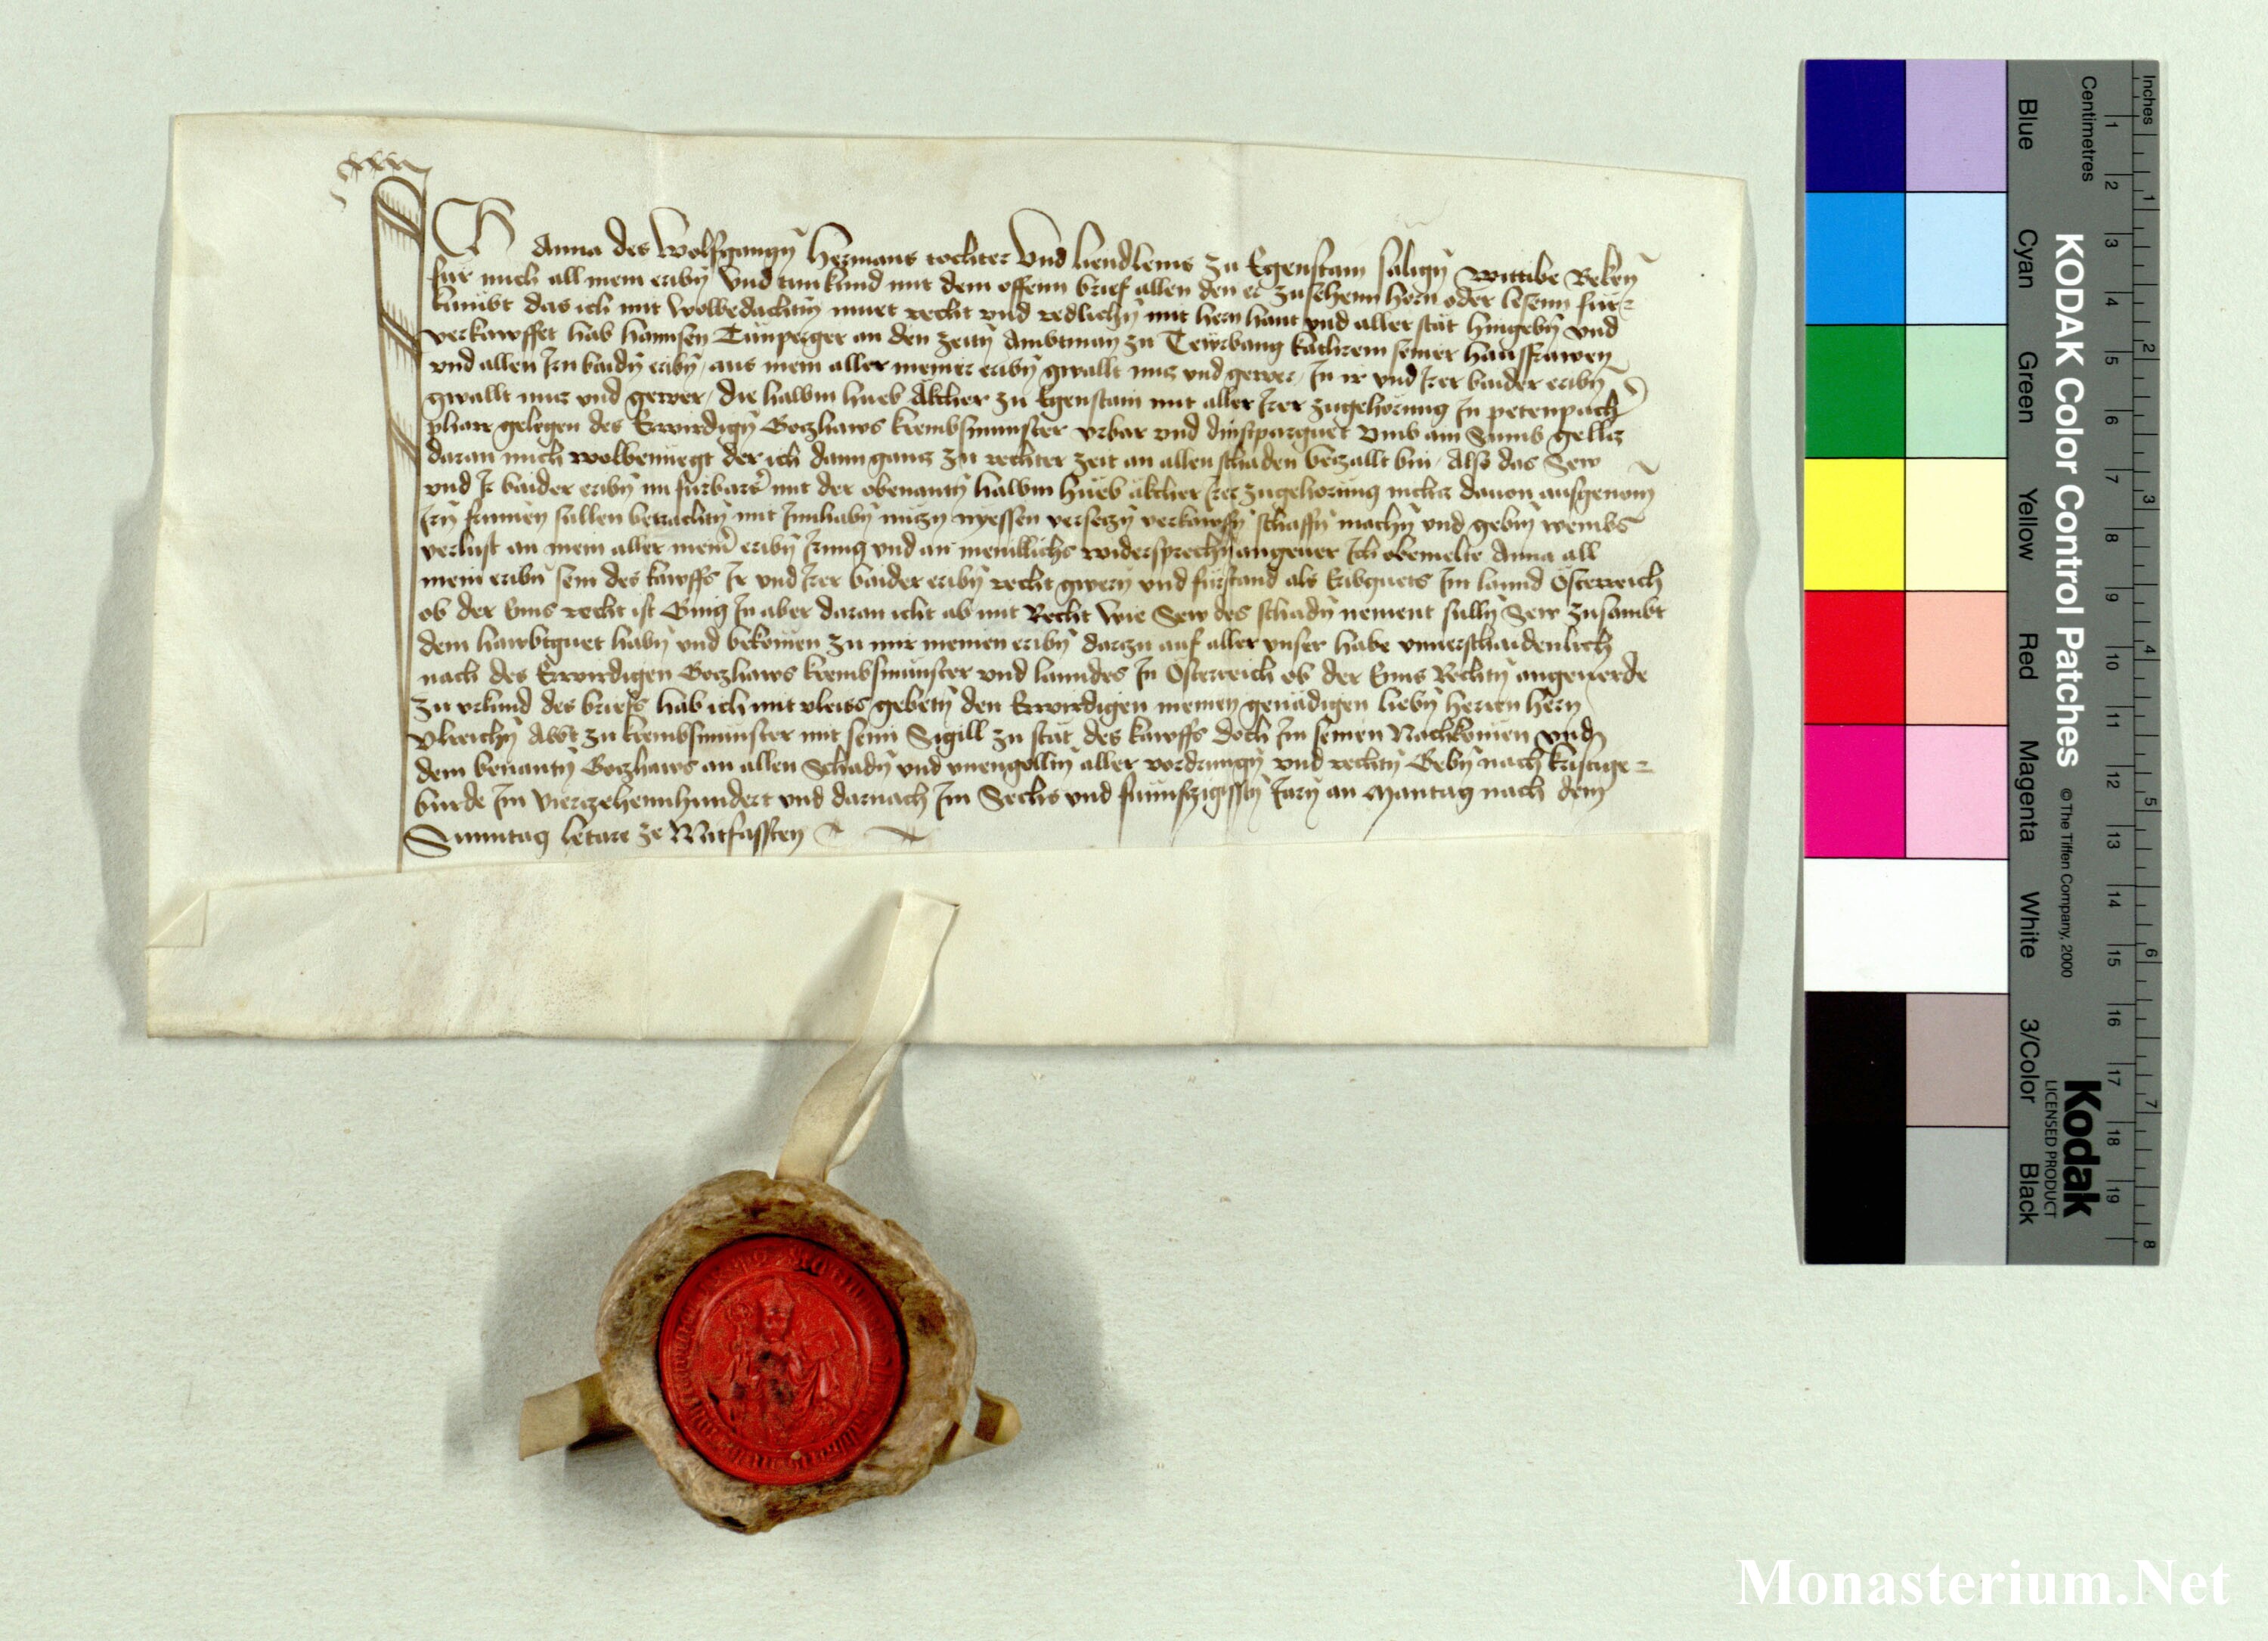 Ich Anna des Wolfgangen Hermans tochter Und hendleins zu Egenstain saligen Wittibe Beken
für mich all mein eriben Und tun kund mit dem offenn brief allen den er zusehenn horn oder lesenn für-
kumbt das ich mit wolbedachten muet recht vnd redlichen mit hern hant vnd aller stät hingeben vnd
verkawffet hab hannsen Tünperger an den zeiten Ambtman zu Teürbang kathrein seiner hausfrawen
vnd allen Irn baiden eriben / aus mein aller meiner eriben gwallt nucz vnd gewer / In ir vnd Irer baider eriben
gwallt nucz vnd gewer / die halbm hueb Äkcher zu Egenstain mit aller Irer zugehorung In petenpach
pharr gelegen des Erwirdigen Goczhaws krembsmunster vrbar vnd dinstparguet vmb ain Sumb gellcz
daran mich wolbenuegt der ich dann gancz zu rechter zeit an allen schaden beczallt bin / Also das Sew
vnd Ir baider eriben nu fürbarz mit der obenanten halbm hueb äkcher Irer zugehorung nichcz dauon ausgenom
Irn frumen sullen betrachten mit Innhaben nuczn nyessen verseczn verkawffn schaffn machn vnd geben wembs
verlust an mein aller meinr eriben Irung vnd an menillichs widersprechn angeuer Ich obemelte Anna all
mein eriben sein des kawffs Ir vnd Irer baider eriben recht gwern vnd fürstand als kaufguets Im lannd Osterreich
ob der Enns recht ist Ging In aber daran icht ab mit Recht wie Sew des schaden nement sulln Sew zusambt
dem hawbtguet haben vnd bekomen zu mir meinen eriben darczu auf aller vnser habe vnuerschaidenlich
nach des Erwirdigen Goczhaws krembsmünster vnd lanndes In Osterreich ob der Enns Rechten angeuerde
Zu vrkund des briefs hab ich mit vleiss gebeten den Erwirdigen meinen genädigen lieben herren hern
Vlreichen Abbt zu krembsmünster mit seim Sigill zu stät des kawffs doch Im seinen Nachkomen vnd
dem benanten Goczhaws an allen Schaden vnd vnengollten aller vordrungen vnd rechten Geben nach kristige-
burde Im Vierczehennhundert vnd darnach Im Sechs vnd fümfczigisten Jarn an Mantag nach dem
Sunntag letare ze Mitfassten
KODAK Color Control Patches
© The Tiffen Company, 2000
Kodak
LICENSED PRODUCT
Inches
Centimetres
Blue
Cyan
Green
Yellow
Red
Magenta
White
3/Color
Black
1 2 3 4 5 6 7 8 9 10 11 12 13 14 15 16 17 18 19
1 2 3 4 5 6 7 8
Monasterium.Net